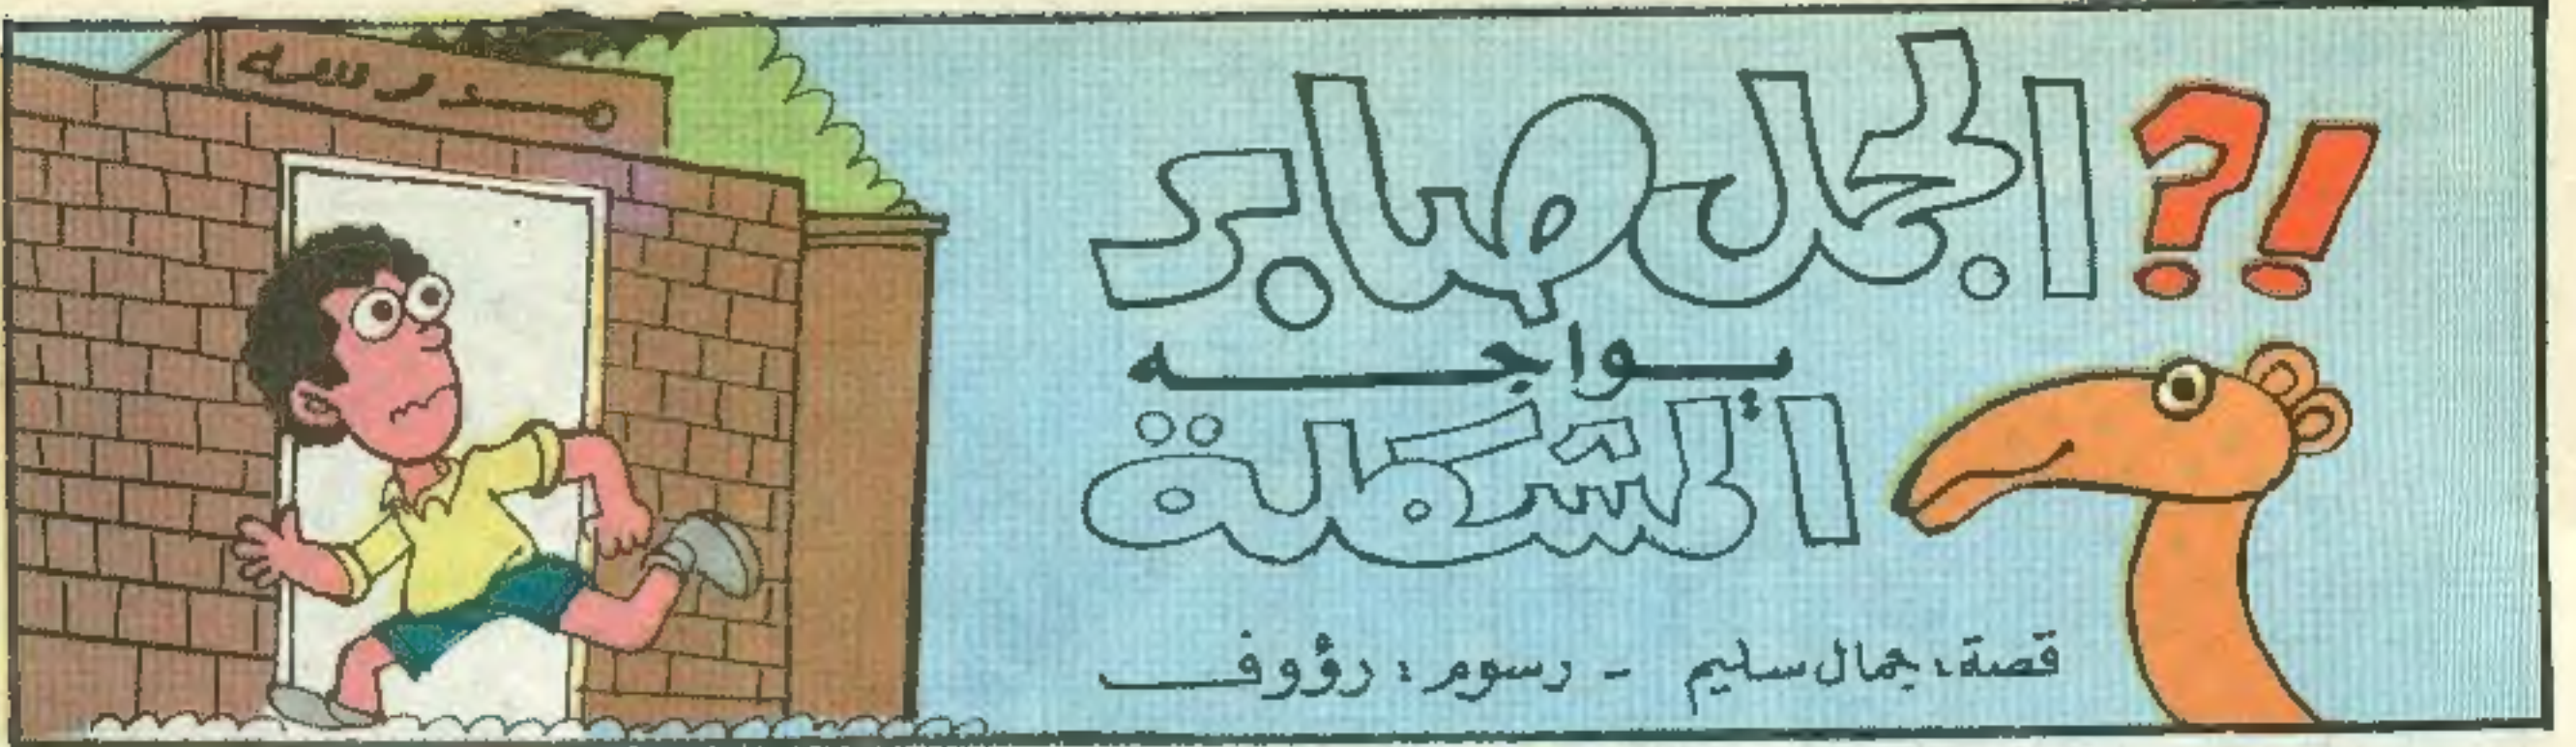 الجمل صابر ?!
يواجه
المشكلة
قصة: جمال سليم - رسوم: رؤوف
مدرسه